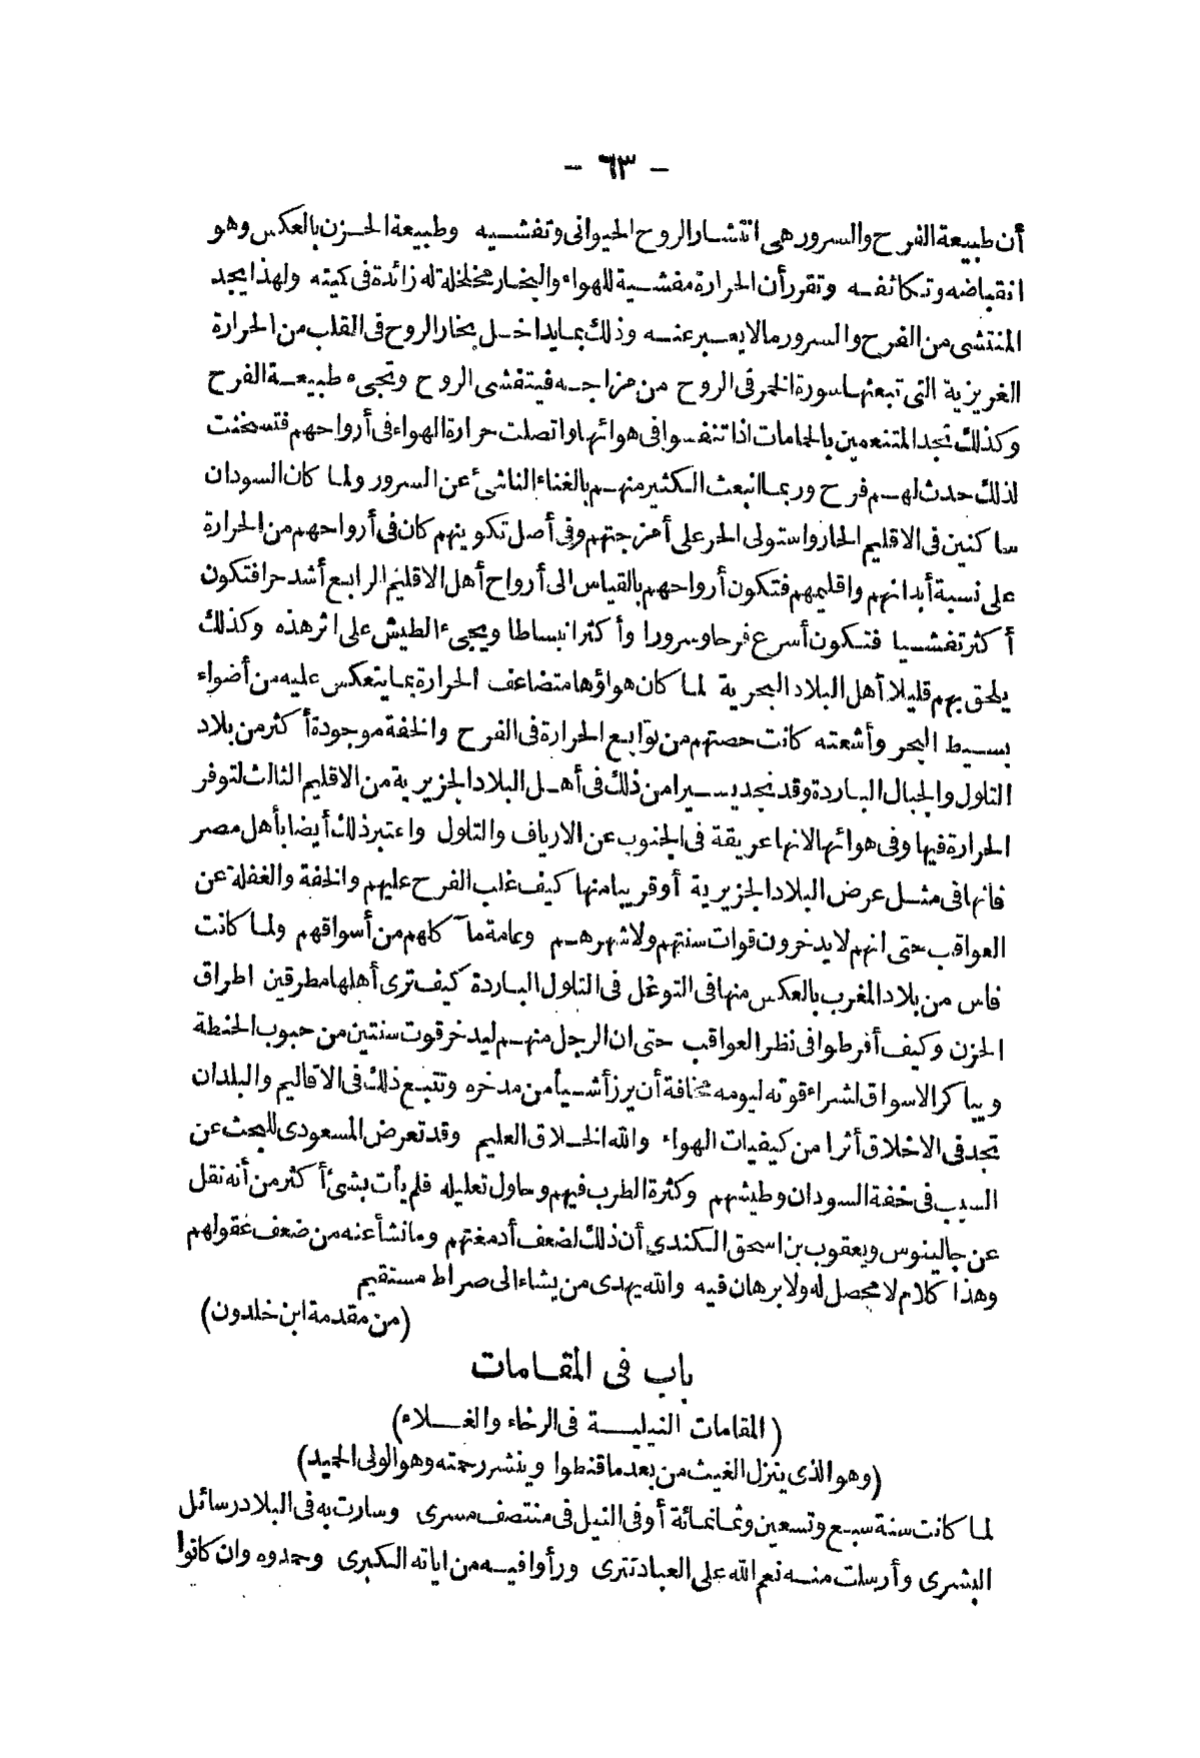 - ٦٣ -
أن طبيعة الفرح والسرور هى انتشار الروح الحيوانى وتفشيه وطبيعة الحزن بالعكس وهو
انقباضه وتكاثفه وتقرر أن الحرارة مفشية للهواء والبخار مخلخلة له زائدة فى كميته ولهذا يجد
المنتشى من الفرح والسرور مالا يعبر عنه وذلك بما يداخل بخار الروح فى القلب من الحرارة
الغريزية التى تبعثها سورة الخمر فى الروح من مزاجه فيتفشى الروح وتجىء طبيعة الفرح
وكذلك نجد المتنعمين بالحمامات اذا تنفسوا فى هوائها واتصلت حرارة الهواء فى أرواحهم فتسخنت
لذلك حدث لهم فرح وربما انبعث الكثير منهم بالغناء الناشئ عن السرور ولما كان السودان
ساكنين فى الاقليم الحار واستولى الحر على أمزجتهم وفى أصل تكوينهم كان فى أرواحهم من الحرارة
على نسبة أبدانهم واقليمهم فتكون أرواحهم بالقياس الى أرواح أهل الاقليم الرابع أشد حرا فتكون
أكثر تفشيا فتكون أسرع فرحا وسرورا وأكثر انبساطا ويجىء الطيش على اثر هذه وكذلك
يلحق بهم قليلا أهل البلاد البحرية لما كان هواؤها متضاعف الحرارة بما ينعكس عليه من أضواء
بسيط البحر وأشعته كانت حصتهم من توابع الحرارة فى الفرح والخفة موجودة أكثر من بلاد
التلول والجبال الباردة وقد نجد يسيرا من ذلك فى أهل البلاد الجزيرية من الاقليم الثالث لتوفر
الحرارة فيها وفى هوائها لانها عريقة فى الجنوب عن الارياف والتلول واعتبر ذلك أيضا بأهل مصر
فانها فى مثل عرض البلاد الجزيرية أو قريبا منها كيف غلب الفرح عليهم والخفة والغفلة عن
العواقب حتى انهم لا يدخرون قوات سنتهم ولا شهرهم وعامة مآكلهم من أسواقهم ولما كانت
فاس من بلاد المغرب بالعكس منها فى التوغل فى التلول الباردة كيف ترى أهلها مطرقين اطراق
الحزن وكيف أفرطوا فى نظر العواقب حتى ان الرجل منهم ليدخر قوت سنتين من حبوب الحنطة
ويباكر الاسواق لشراء قوته ليومه مخافة أن يرزأ شيأ من مدخره وتتبع ذلك فى الاقاليم والبلدان
تجد فى الاخلاق أثرا من كيفيات الهواء والله الخلاق العليم وقد تعرض المسعودى للبحث عن
السبب فى خفة السودان وطيشهم وكثرة الطرب فيهم وحاول تعليله فلم يأت بشئ أكثر من أنه نقل
عن جالينوس ويعقوب بن اسحق الكندى أن ذلك لضعف أدمغتهم وما نشأ عنه من ضعف عقولهم
وهذا كلام لا محصل له ولا برهان فيه والله يهدى من يشاء الى صراط مستقيم
(من مقدمة ابن خلدون)
باب فى المقامات
(المقامات النيلية فى الرخاء والغلاء)
(وهو الذى ينزل الغيث من بعد ما قنطوا وينشر رحمته وهو الولى الحميد)
لما كانت سنة سبع وتسعين وثمانمائة أوفى النيل فى منتصف مسرى وسارت به فى البلاد رسائل
البشرى وأرسلت منه نعم الله على العباد تترى ورأوا فيه من اياته الكبرى وحمدوه وان كانوا